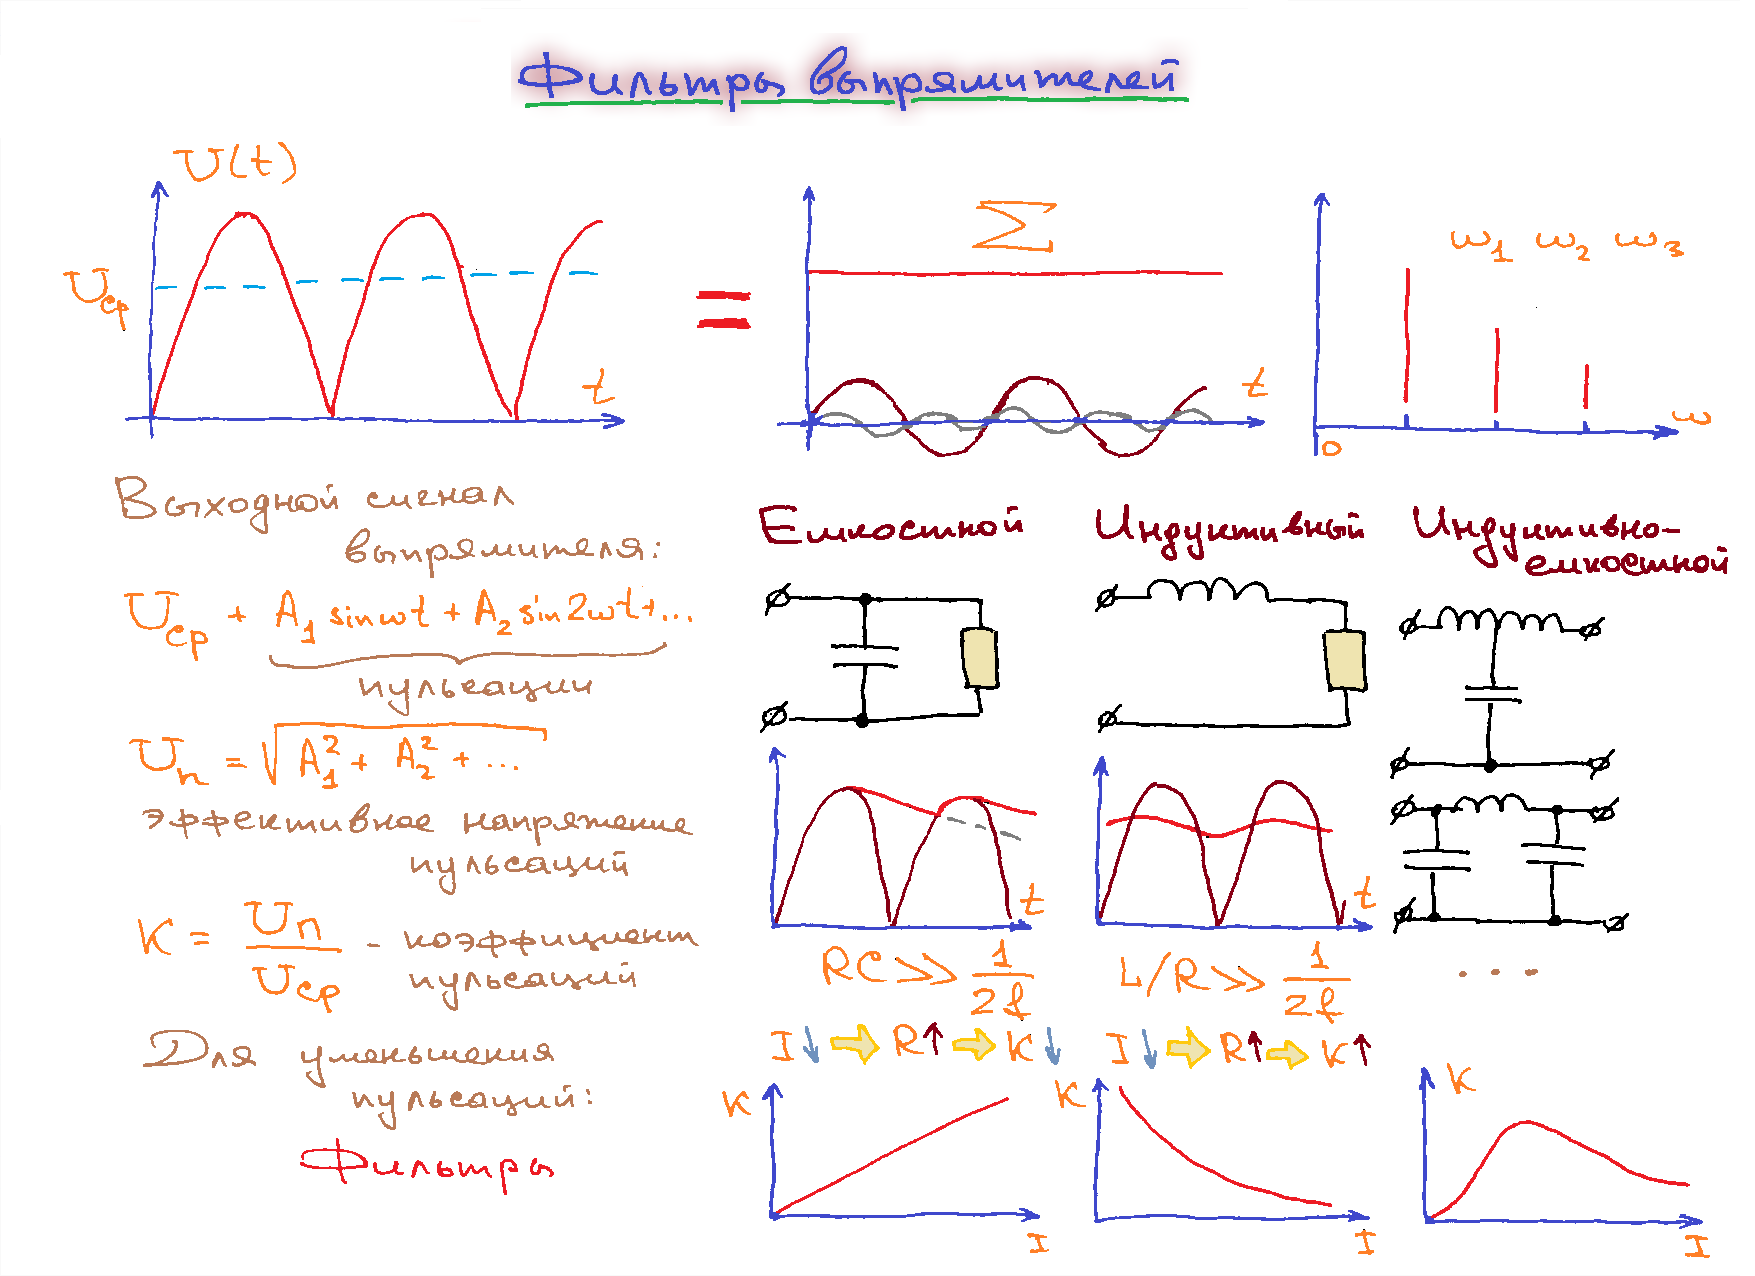 Фильтры выпрямителей
U(t)
Uср
t
=
Σ
t
ω1 ω2 ω3
0
ω
Выходной сигнал
выпрямителя:
Uср + A1 sinωt + A2 sin2ωt+...
пульсации
Uп = √(A1² + A2² + ...)
эффективное напряжение
пульсаций
K = Uп / Uср - коэффициент
пульсаций
Для уменьшения
пульсаций:
Фильтры
Емкостной
t
RC >> 1/2f
I↓ ⇒ R↑ ⇒ K↓
K
I
Индуктивный
t
L/R >> 1/2f
I↓ ⇒ R↑ ⇒ K↑
K
I
Индуктивно-
емкостной
...
K
I